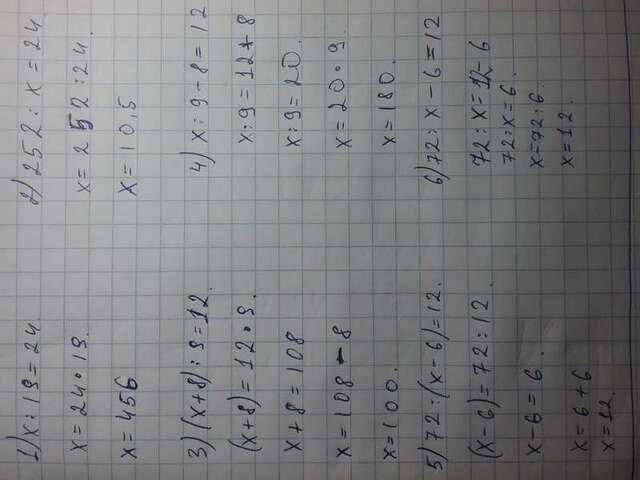 1) x : 19 = 24.
x = 24 · 19.
x = 456
2) 252 : x = 24.
x = 252 : 24.
x = 10,5
3) (x+8) : 9 = 12.
(x+8) = 12 · 9.
x + 8 = 108
x = 108 - 8
x = 100.
4) x : 9 - 8 = 12
x : 9 = 12 + 8
x : 9 = 20.
x = 20 · 9.
x = 180.
5) 72 : (x - 6) = 12.
(x - 6) = 72 : 12.
x - 6 = 6.
x = 6 + 6
x = 12.
6) 72 : x - 6 = 12
72 : x = 12 - 6
72 : x = 6.
x = 72 : 6.
x = 12.